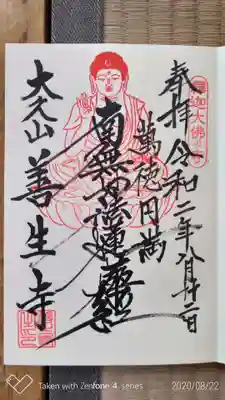 奉拝 令和二年八月廿二日
釈迦大佛の寺
萬徳円満
南無妙法蓮華経
大久山 善生寺
Taken with Zenfone 4 series
2020/08/22